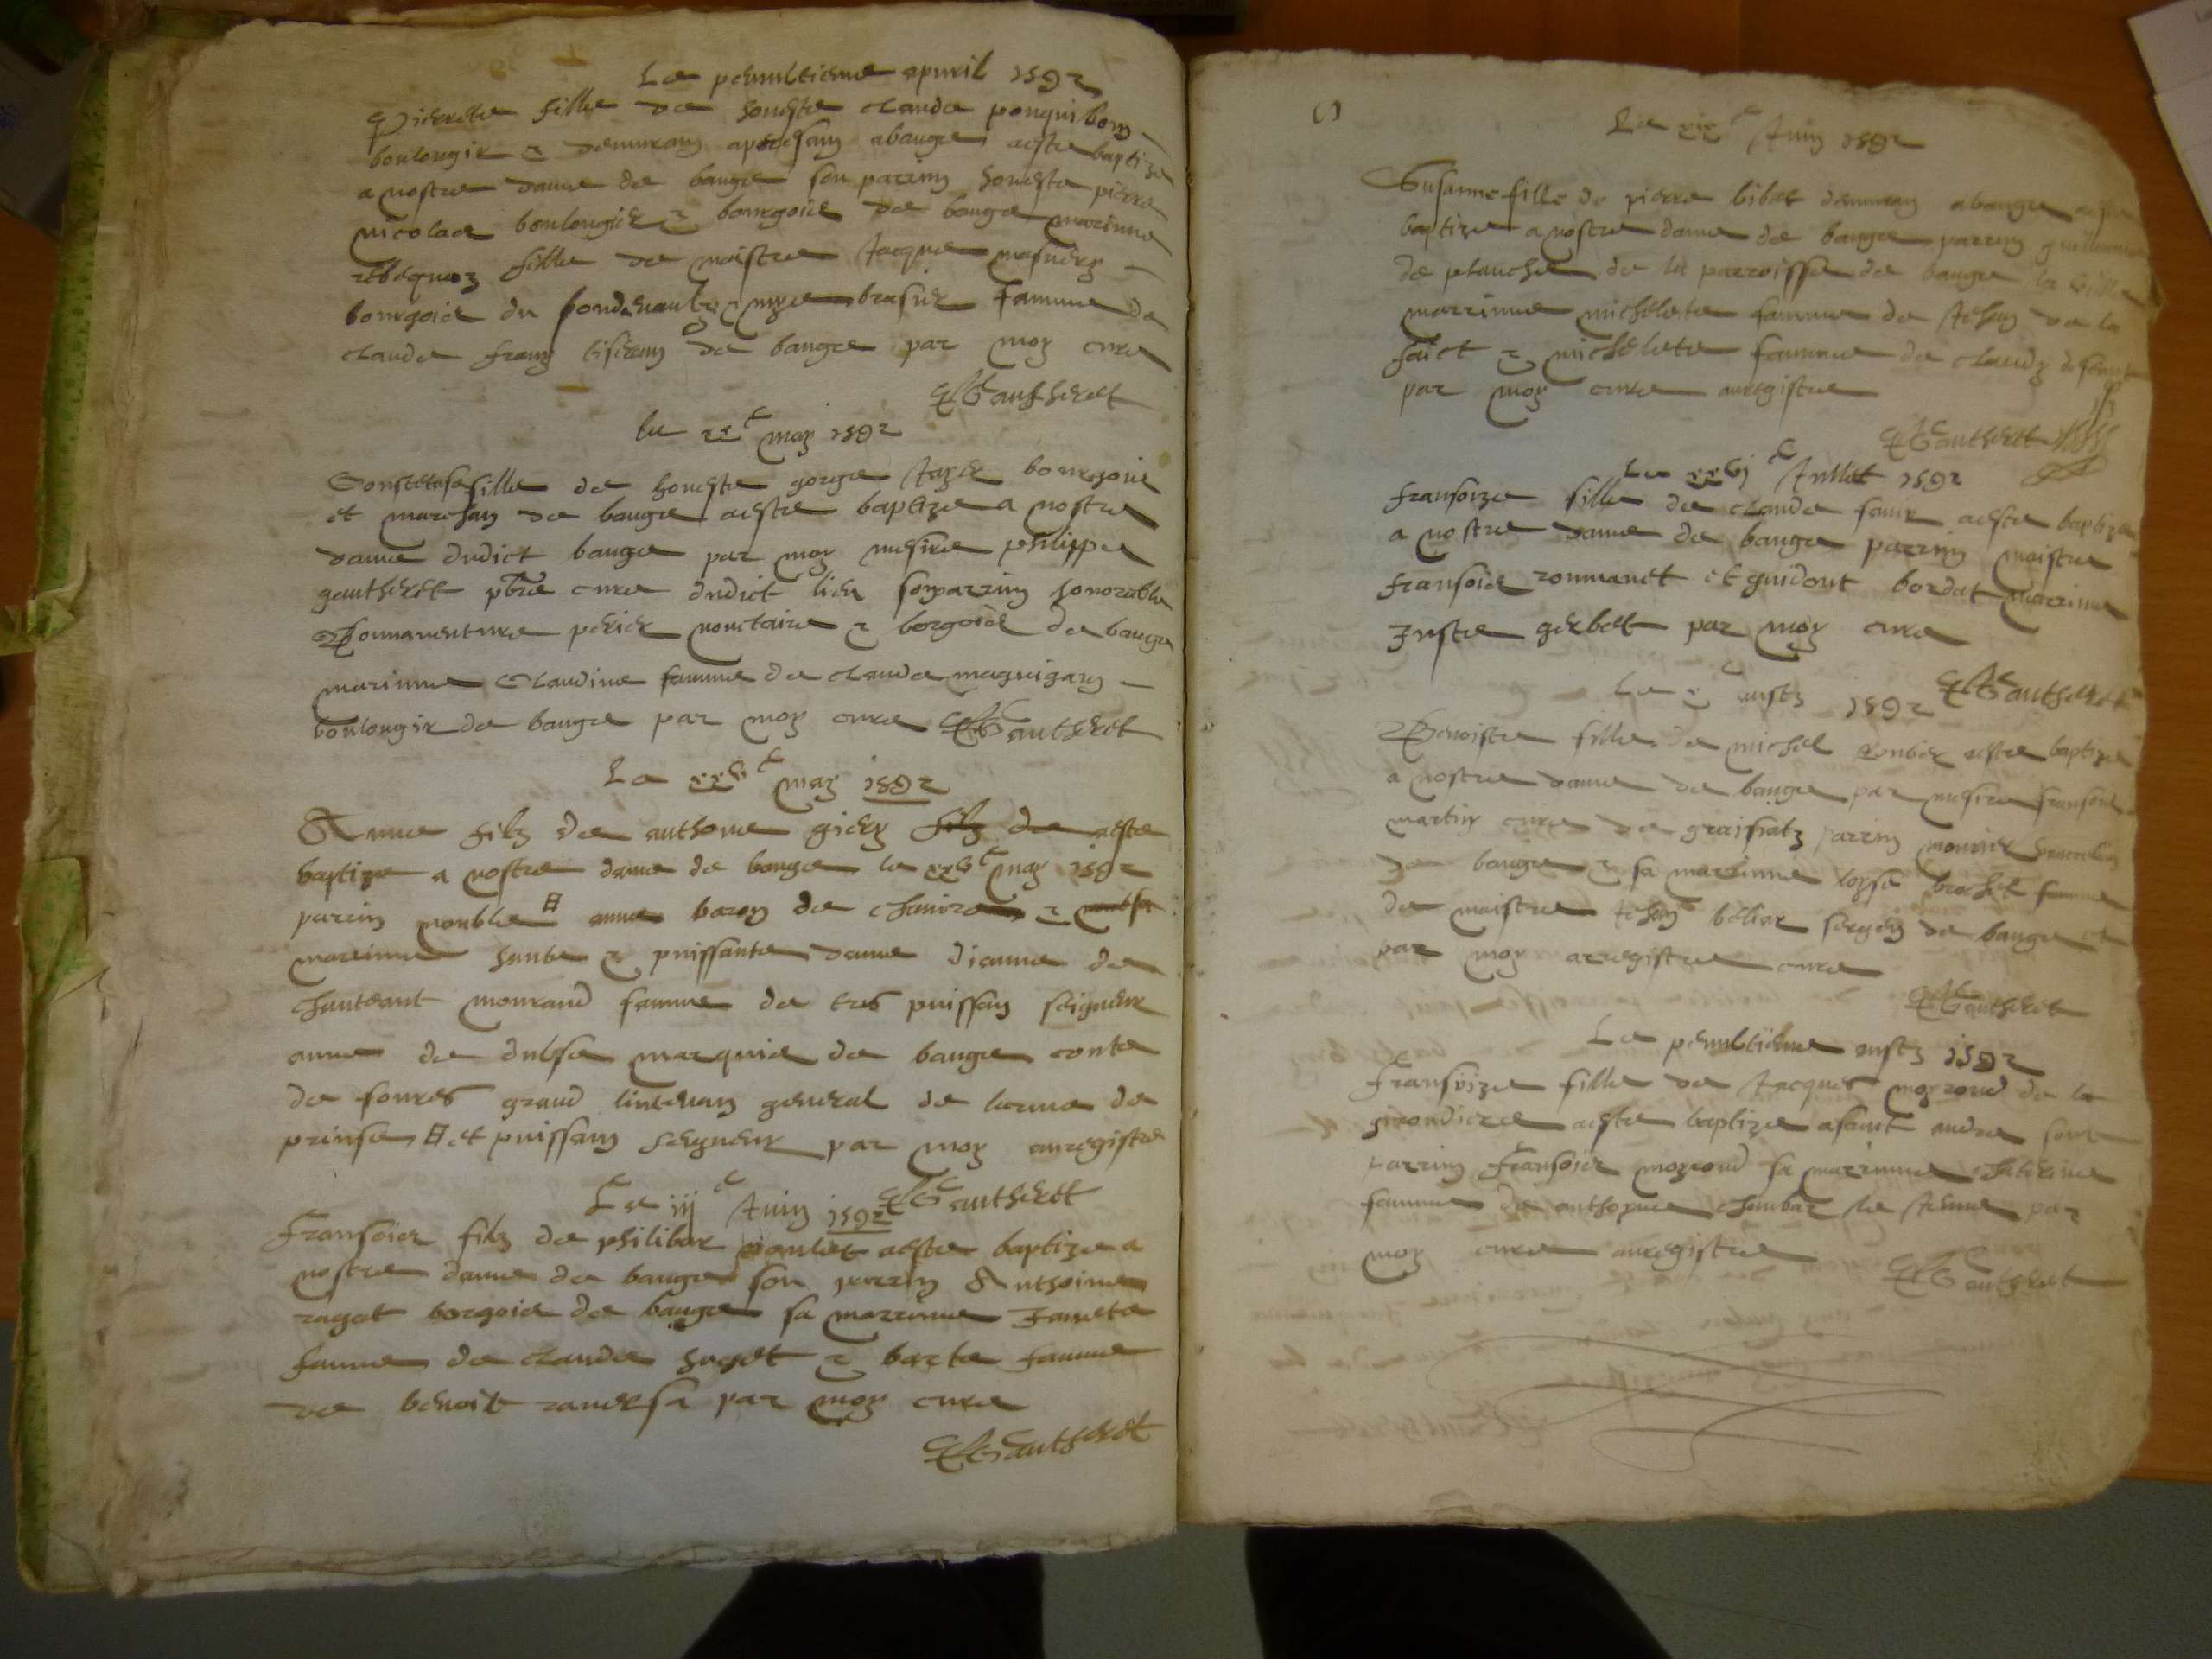 Le penultieme apvril 1592
Pierrete fille de honeste claude ponquibon
boulongir & demuran apresan a bauge aeste baptize
a nostre dame de bauge son parrin honeste pierre
nicolas boulongier & bourgois de bauge marinne
fille de maistre Jacque
bourgois du & brasier famme de
claude franc tiseran de bauge par moy cure
Gautheret
le xx e may 1592
fille de honeste gorge Jayer bourgois
et marchan de bauge aeste baptize a nostre
dame dudict bauge par moy mesire philippe
gautheret pbre cure dudict lieu son parrin honorable
Bonnaventure perier noutaire & borgois de bauge
marinne Claudine famme de claude maguigary
boulongir de bauge par moy cure Gautheret
Le xxv e may 1592
Anne filz de anthone giery filz de aeste
baptize a nostre dame de bauge le xxv e may 1592
parrin nouble anne baron de &
marrinne haute & puissante dame dianne de
famme de tres puissan seigneur
anne de marquis de bauge conte
de grand lintenan general de larme de
prinse et puissan seigneur par moy anregistre
Le iij e Juin 1592 Gautheret
Fransois filz de philibar aeste baptize a
nostre dame de bauge son parrin Anthoine
ragot borgois de bauge sa marrinne Janete
famme de claude huget & barte famme
de benoit raversa par moy cure
Gautheret
Le xix e Juin 1592
Susanne fille de pierre bibet demuran a bauge aeste
baptize a nostre dame de bauge parrin
de planche de la parroisse de bauge la ville
marrinne michelete famme de Jehan de la
faict & michelete famme de claude
par moy cure anregistre
Gautheret
Le xxvj e Jullet 1592
Fransoize fille de claude faur aeste baptize
a nostre dame de bauge parrin maistre
Fransois roumanet et guidont bordat marrinne
Juste gerbet par moy cure
Le x e aust 1592 Gautheret
Benoiste fille de michel aeste baptize
a nostre dame de bauge par mesire fransois
martin cure de parrin
de bauge & sa marrinne loyse brochet famme
de maistre Jehan beliar sergen de bauge et
par moy arregistre cure
Gautheret
Le penultieme aust 1592
Fransoize fille de Jacques moyroud de la
girondiere aeste baptize a saint andre sont
parrin Fransois moyroud sa marrinne chaterine
famme de anthoyne par
moy cure anregistre
Gautheret